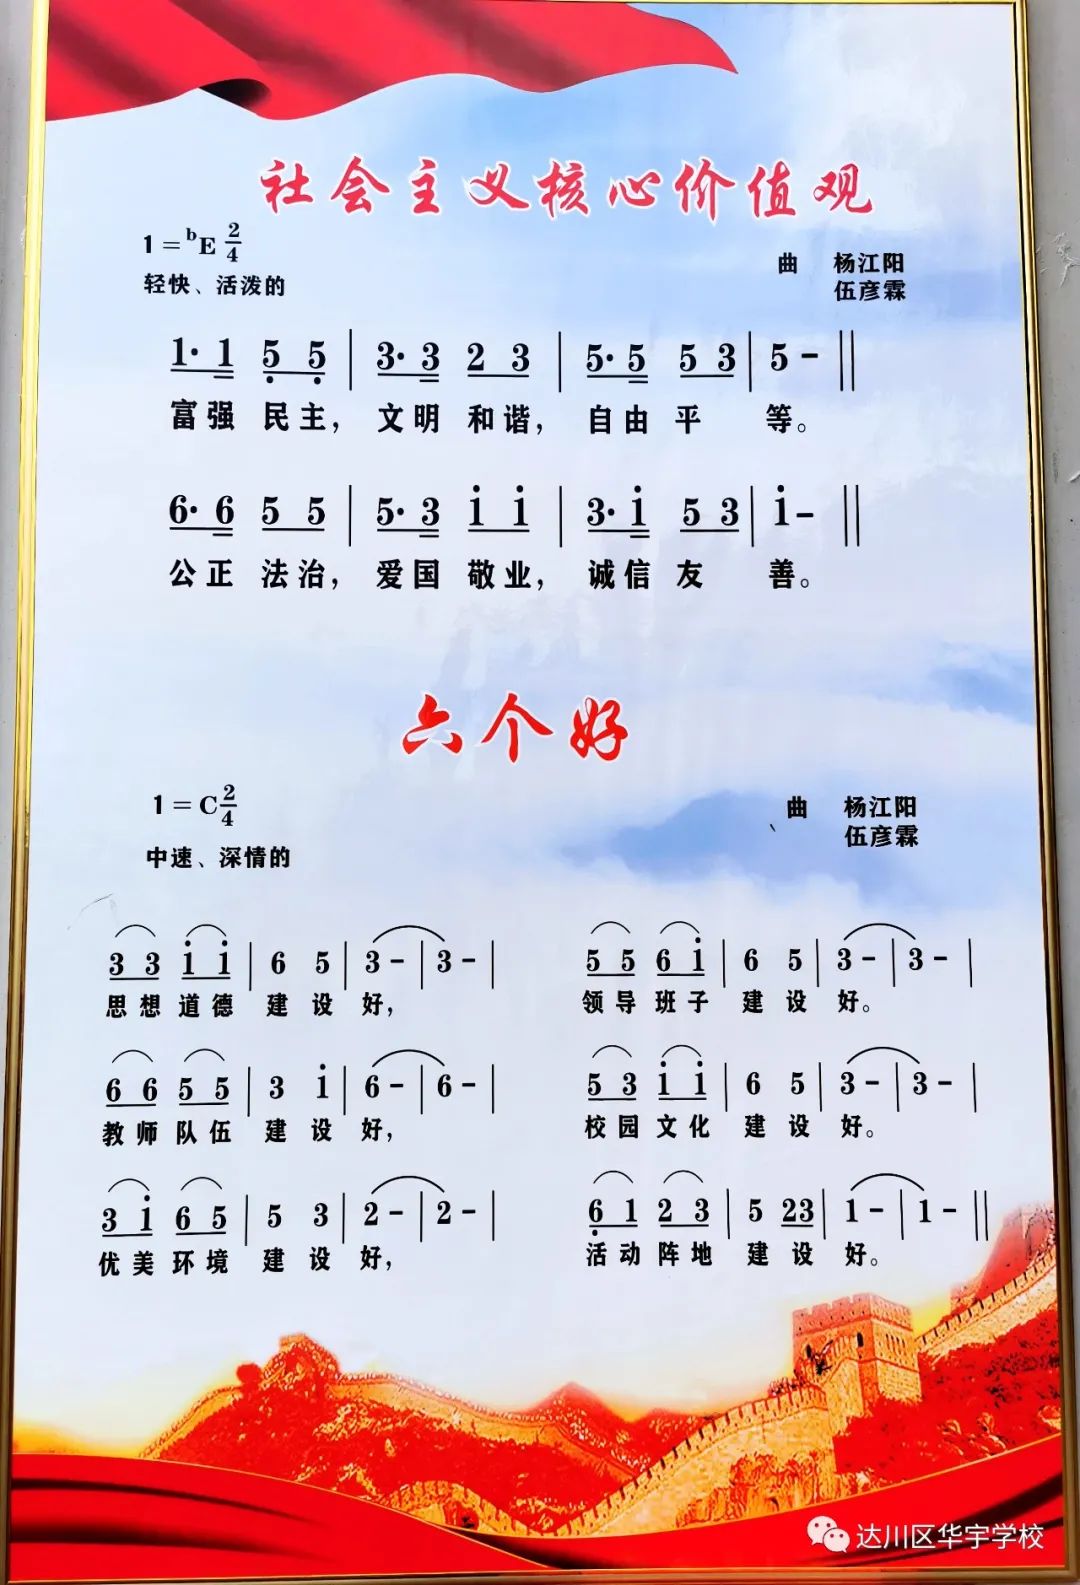 社会主义核心价值观
1=ᵇE 2/4
轻快、活泼的
曲 杨江阳
伍彦霖
1· 1 5̣ 5̣ | 3· 3 2 3 | 5· 5 5 3 | 5 - ||
富强 民主, 文明 和谐, 自由 平 等。
6· 6 5 5 | 5· 3 1̇ 1̇ | 3· 1̇ 5 3 | 1̇ - ||
公正 法治, 爱国 敬业, 诚信 友 善。
六个好
1=C 2/4
中速、深情的
曲 杨江阳
伍彦霖
3 3 1̇ 1̇ | 6 5 | 3 - | 3 - |
思想 道德 建设 好,
5 5 6 1̇ | 6 5 | 3 - | 3 - |
领导 班子 建设 好。
6 6 5 5 | 3 1̇ | 6 - | 6 - |
教师 队伍 建设 好,
5 3 1̇ 1̇ | 6 5 | 3 - | 3 - |
校园 文化 建设 好。
3 1̇ 6 5 | 5 3 | 2 - | 2 - |
优美 环境 建设 好,
6̣ 1 2 3 | 5 23 | 1 - | 1 - ||
活动 阵地 建设 好。
达川区华宇学校